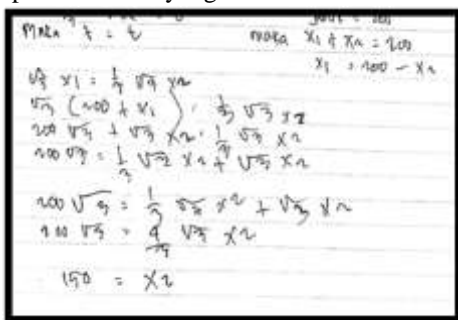 Maka t = t
maka x1 + x2 = 200
x1 = 200 - x2
√3 x1 = 1/3 √3 x2
√3 (200 + x1) = 1/3 √3 x2
200 √3 + √3 x2 = 1/3 √3 x2
200 √3 = 1/3 √3 x2 + √3 x2
200 √3 = 1/3 √3 x2 + √3 x2
200 √3 = 4/3 √3 x2
150 = x2